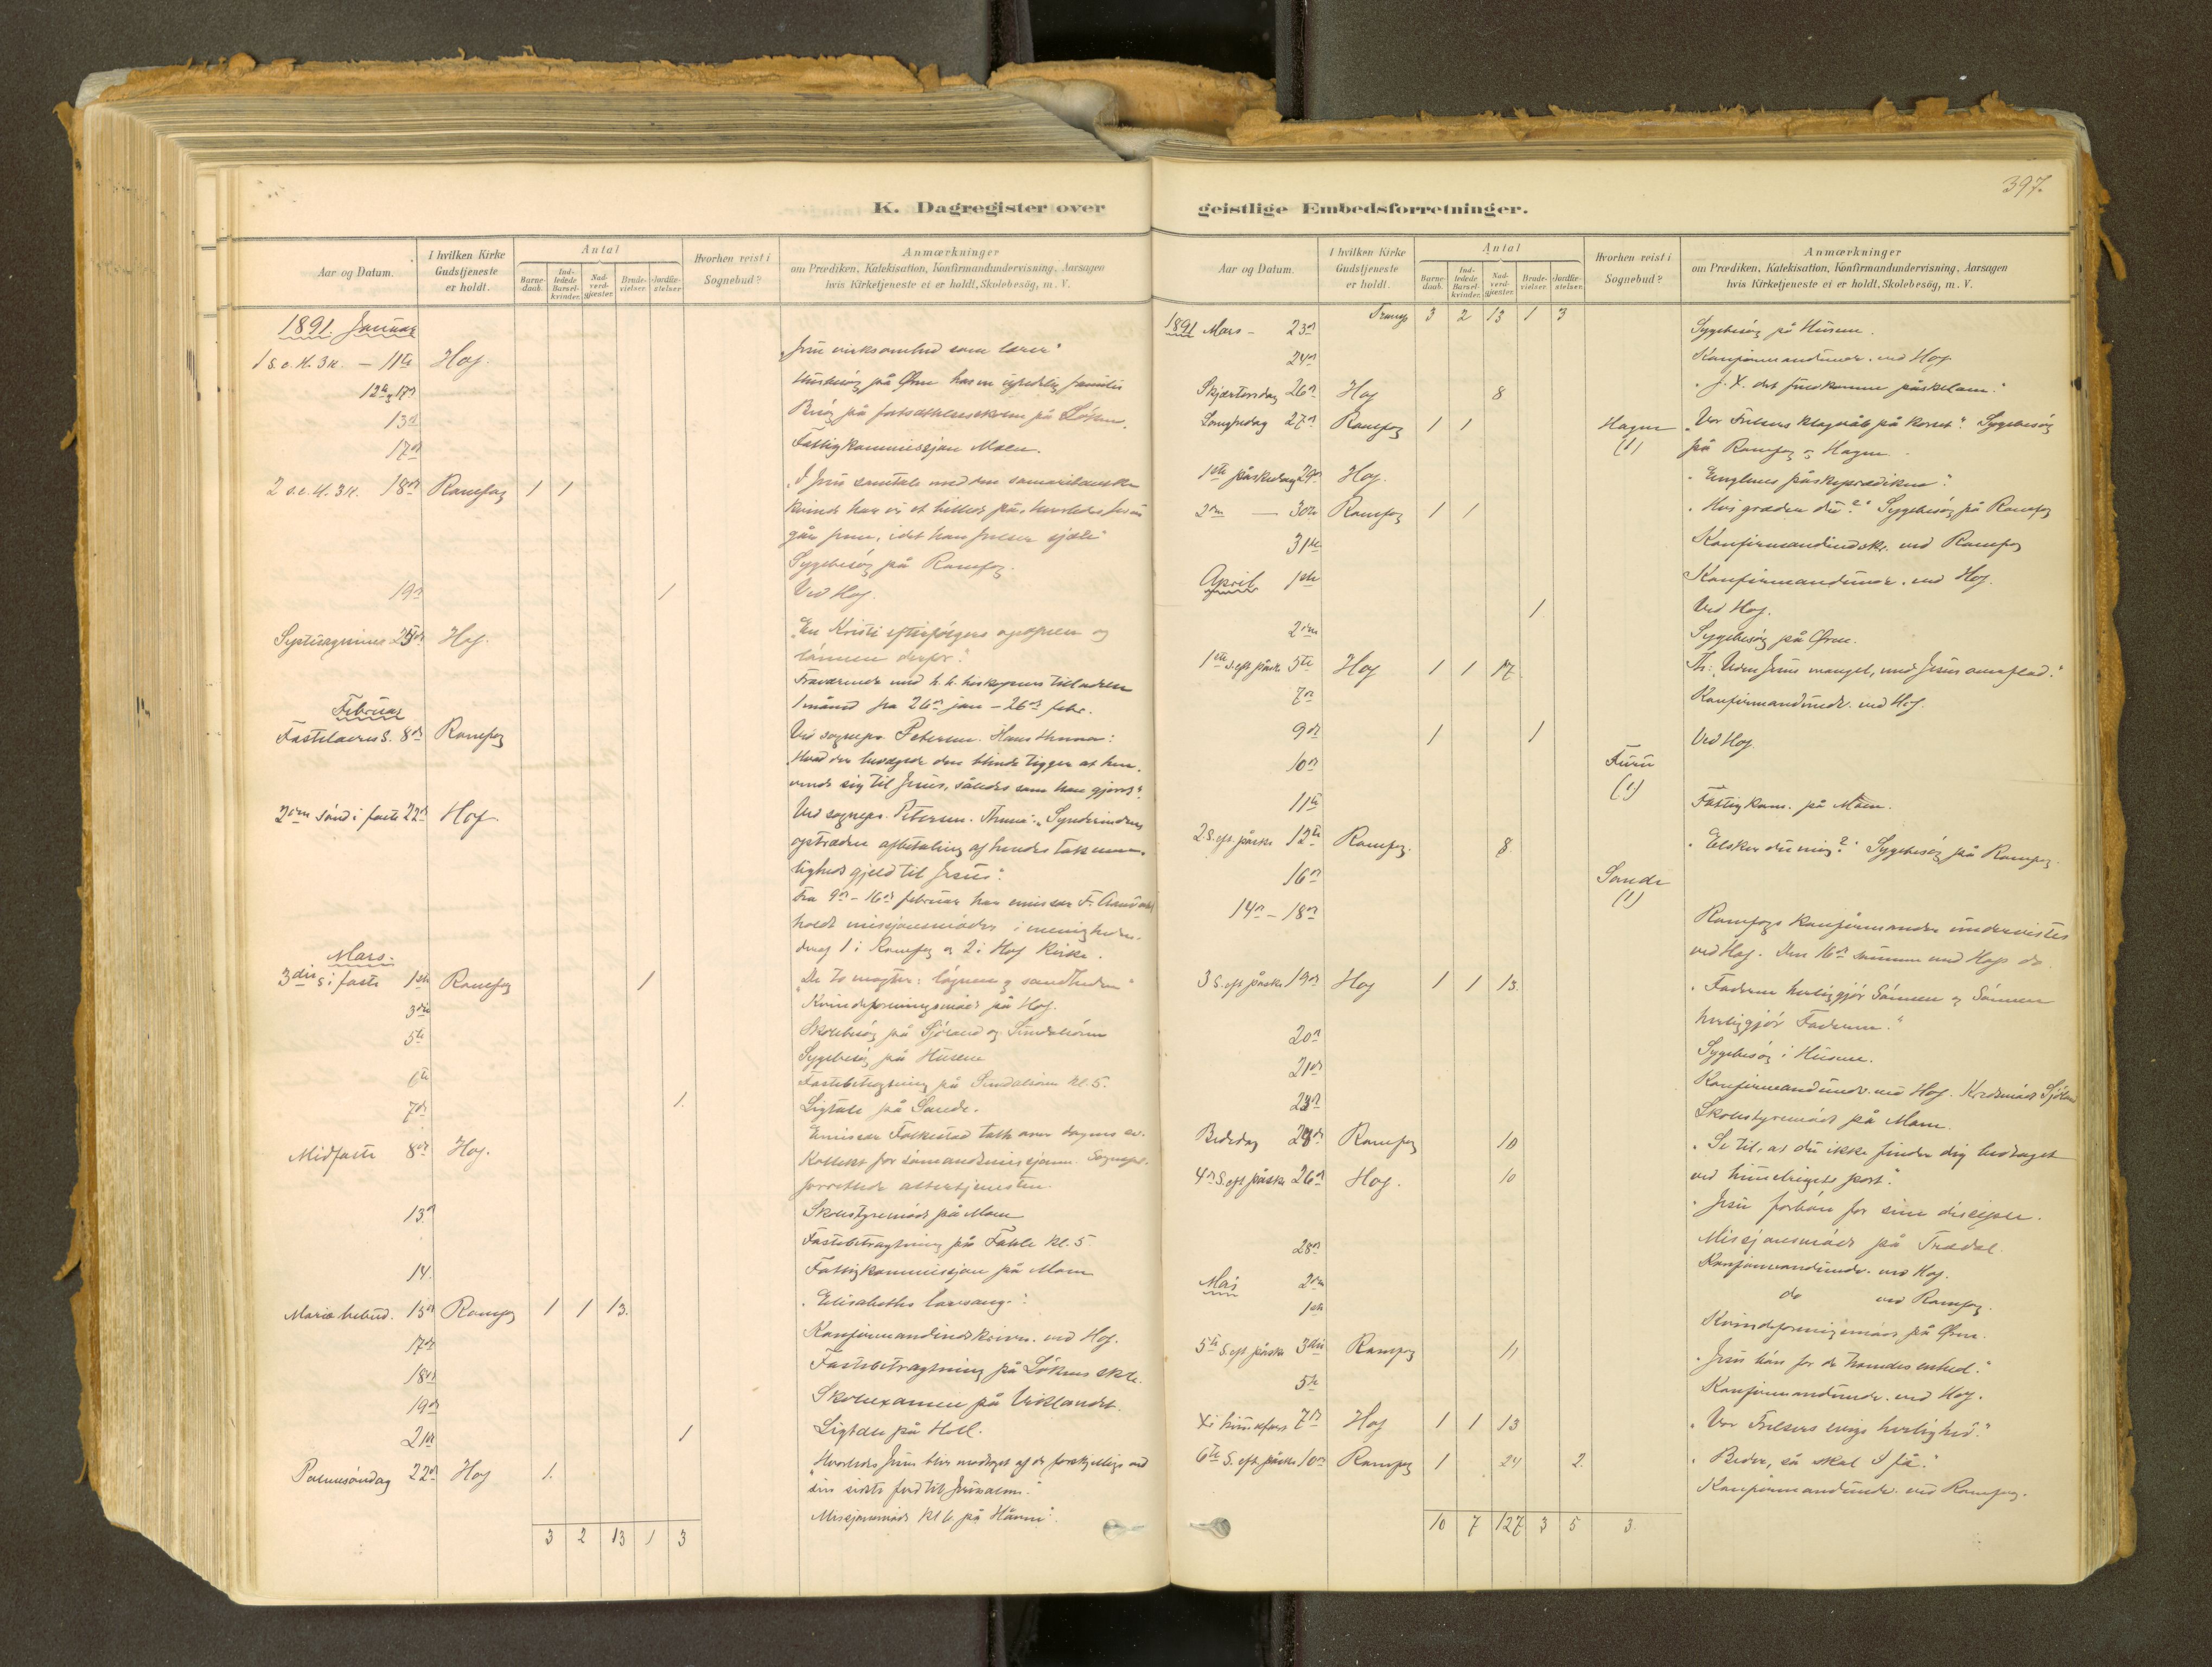 397.
K. Dagregister over
Aar og Datum.
I hvilken Kirke Gudstjeneste er holdt.
Antal
Barne-daab.
Ind-ledede Barsel-kvinder.
Nad-verd-gjester.
Brude-vielser.
Jordfæ-stelser.
Hvorhen reist i Sognebud?
Anmærkninger
om Prædiken, Katekisation, Konfirmandundervisning, Aarsagen
hvis Kirketjeneste ei er holdt, Skolebesög, m. V.
1891. Januar
1 s. e. H. 3 K. – 11te Hof. „Jesu virksomhed som lærer“
12te, 17d Husbesög på Øren hos en familie
13d Besög på fortsættelsesskolen på Løken.
17d Fattigkommissjon Moen.
2 s. e. H. 3 K. 18d Ramfog 1 1 „I Jesu samtale med den samaritanske
kvinde har vi et billede på, hvorledes Jesus
går frem, idet han frelser sjæle“
Sygebesög på Ramfog.
19d 1 Ved Hof.
Septuagesima 25d Hof. „En Kristi efterfölgers opofrelse og
lönnen derfor.“
Fraværende med h. h. biskopens tilladelse
1 måned fra 26d jan – 26d febr.
Februar
Fastelavns S. 8d Ramfog Ved sognepr. Petersen. Hans thema:
Hvad der bevægede den blinde tigger at hen-
vende sig til Jesus, således som han gjorde“.
2den sönd i faste 22d Hof. Ved sognepr. Petersen. Thema: „Synderindens
opträden afbetaling af hendes taknem-
ligheds gjeld til Jesus“.
Fra 9d – 16d februar har emissær F.
holdt missjonsmöder i menigheden.
deraf 1 i Ramfog og 2 i Hof kirke.
Mars.
3die s. i faste 1ste Ramfog 1 „De to magter: lögnen og sandheden“
3die Kvindeforeningsmöde på Hof.
5te Skolebesög på Sjöland og
Sygebesög på Husene
6te Fastebetragtning på kl. 5.
7de 1. Ligtale på Sande.
Midfaste 8de Hof. Emissær Falkestad talte over dagens ev.
Kollekt for sömandsmissjonen. Sognepr.
forrettede altertjenesten.
13d Skolestyremöde på Moen
Fastebetragtning på Fahle kl. 5
14. Fattigkommissjon på Moen
Mariæ bebud. 15d Ramfog 1 1 13. „Elisabeths lovsang“.
17d Konfirmandindskrivn. ved Hof.
18d Fastebetragtning på Løkens skole.
19d Skoleexamen på Viklandet.
21de 1 Ligtale på Holl.
Palmesöndag 22d Hof 1. „Hvorledes Jesus blev modtaget af de forskjellige ved
sin sidste færd til Jerusalem.“
Missjonsmöde kl 6 på
3 2 13 1 3
geistlige Embedsforretninger.
Aar og Datum.
I hvilken Kirke Gudstjeneste er holdt.
Antal
Barne-daab.
Ind-ledede Barsel-kvinder.
Nad-verd-gjester.
Brude-vielser.
Jordfæ-stelser.
Hvorhen reist i Sognebud?
Anmærkninger
om Prædiken, Katekisation, Konfirmandundervisning, Aarsagen
hvis Kirketjeneste ei er holdt, Skolebesög, m. V.
Transp 3 2 13 1 3
1891 Mars – 23d Sygebesög på Husene.
24d Konfirmandunder. ved Hof
Skjærtorsdag 26d Hof 8 „J. X. det fuldkomne påskelam.“
Langfredag 27d Ramfog 1 1 Hagen „Vor Frelsers klageråb på korset“. Sygebesög
(1) på Ramfog og Hagen.
1ste påskedag 29d Hof. „Englenes påskeprædiken“.
2den — 30te Ramfog 1 1 „Hvi græder du?“ Sygebesög på Ramfog
31te Konfirmandindskr. ved Ramfog
April 1ste Konfirmandunder. ved Hof.
1 Ved Hof.
2den Sygebesög på Øren.
1ste s. eft påske 5te Hof 1 1 17 Th: „Uden Jesus mangel, med Jesus overflod.“
7d Konfirmandunde. ved Hof.
9d 1 1 Ved Hof.
10d Furu
(1)
11te Fattigkom. på Moen.
2 S. eft. påske 12te Ramfog. 8 „Elsker du mig?“ Sygebesög på Ramfog.
16d Sande
(1)
14d – 18d Ramfogs konfirmander undervistes
ved Hof. Den 16d sammen med Hofs do
3 S. eft påske 19d Hof 1 1 13. „Faderen herliggjör Sönnen og Sönnen
herliggjör Faderen.“
20d Sygebesög i Husene.
21de Konfirmandunder. ved Hof. Kredsmöde Sjöland
23d Skolestyremöde på Moen.
Bededag Ramfog 10 „Se til, at du ikke finder dig bedraget
ved himmelrigets port“.
4d S. eft påske 26d Hof. 10 „Jesu forbön for sine disciple.
28d Missjonsmöde på Trædal.
Konfirmandunde. ved Hof.
Mai 2den do ved Ramfog.
1ste Kvindeforeningsmöde på Øren.
5te S. eft påske 3die Ramfog 11 „Jesu bön for de troendes enhed.“
5te Konfirmandunde. ved Hof.
Kr. himmelfart 7d Hof 1 1 13 „Vor Frelsers evige herlighed.“
6te S. eft. påske 10d Ramfog 1 24 2. „Beder, så skal I få.“
Konfirmandunde. ved Ramfog.
10 7 127 3 5 3